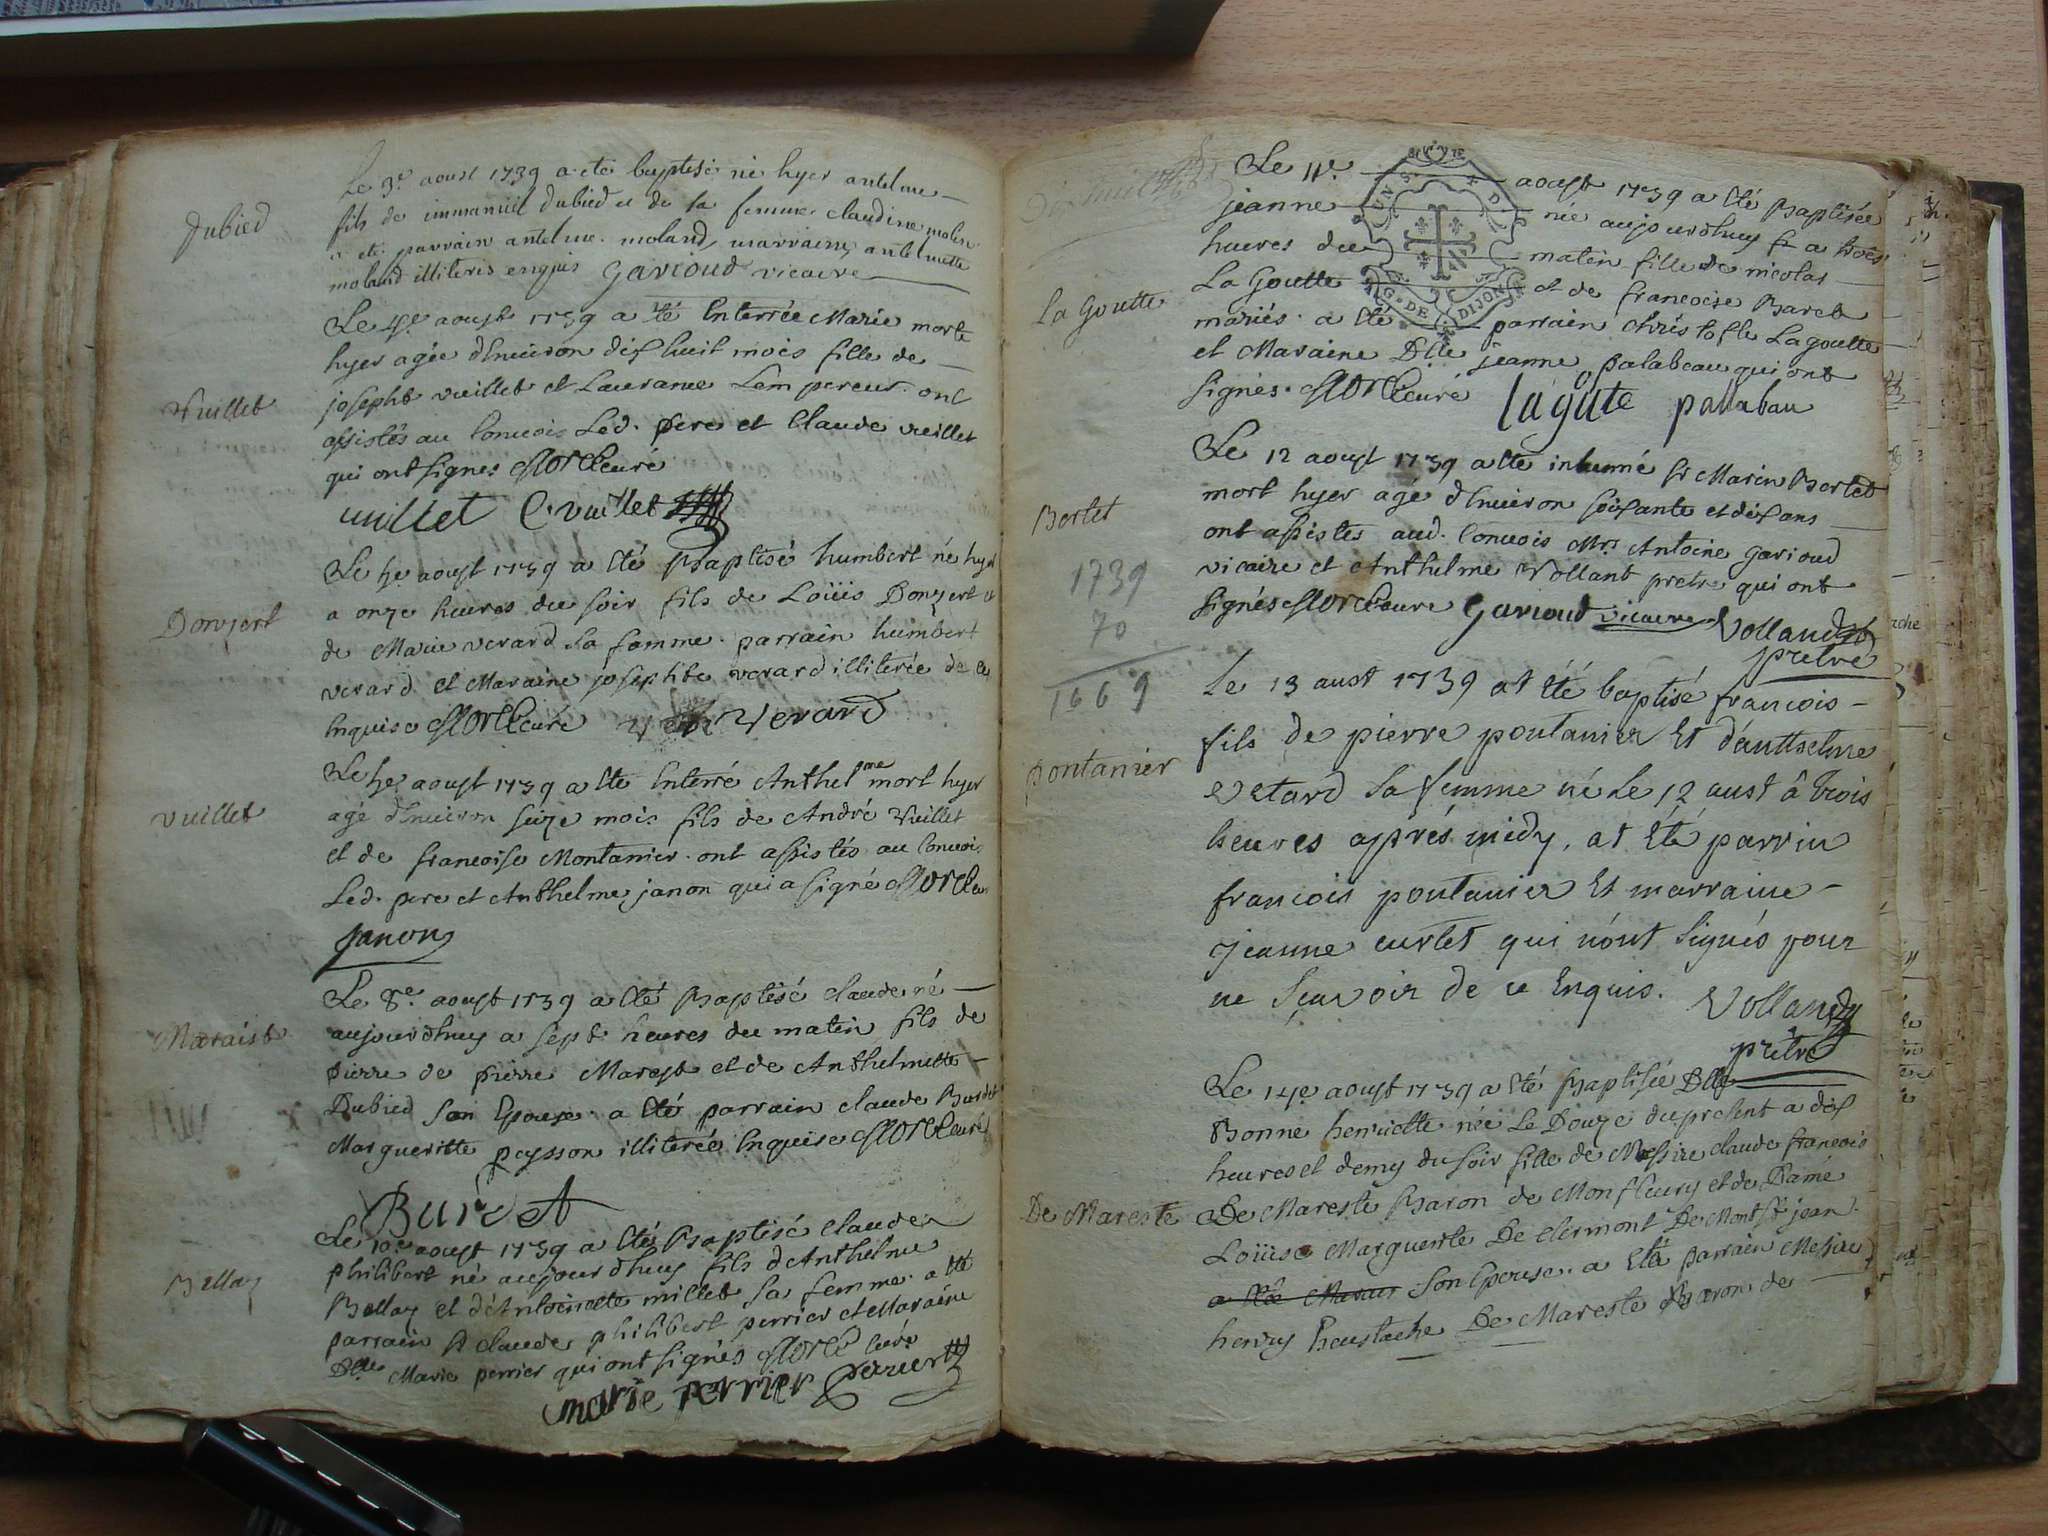 Dubied
Le 3e aoust 1739 a ete baptisé né hyer antelme
fils de immanuel dubied et de sa femme claudine molin
a ete parrain antelme moland, marraine antelmette
moland illiteris enquis Garioud vicaire
Vuillet
Le 4e aoust 1739 a eté Enterrée Marie morte
hyer agée d'Environ dix huit mois fille de
josepht vuillet et Laurance Lempereur ont
assistés au Convois Led. pere et Claude vuillet
qui ont signes curé
vuillet C. vuillet
Donzert
Le 5e aoust 1739 a Eté Baptisé humbert né hyer
a onze heures du soir fils de Loüis Donzert et
de Marie verard sa famme parrain humbert
verard et Maraine josephte verard illiterée de ce
Enquise curé verard
vuillet
Le 5e aoust 1739 a Ete Enterré Anthelme mort hyer
agé d'Environ seize mois fils de André Vuillet
et de francoise Montanier ont assistés au Convois
Led. pere et Anthelme janon qui a signé
janon
Maraist
Le 8e aoust 1739 a Eté Baptisé claude né
aujourdhuy a sept heures du matin fils de
pierre de pierre Marest et de Anthelmette
Dubied son Epouse a Eté parrain claude Burdet
Margueritte peysson illiterée Enquise curé
Burdet
Bellay
Le 10e aoust 1739 a Eté Baptisé Claude
philibert né aujourdhuy fils d'Anthelme
Bellay et d'Antoinette millet sa femme a Eté
parrain Sr claude philibert perrier et Maraine
Dlle Marie perrier qui ont signés curé
marie perrier perrier
La Goutte
Le 11e aoust 1739 a Eté Baptisée
jeanne née aujourdhuy a trois
heures du matin fille de nicolas
La Goutte et de francoise Baret
mariés a Eté parrain Christofle Lagoutte
et Maraine Dlle jeanne palabeau qui ont
signés curé lagute pallabau
UNS. G. DE DIJON
Bertet
1739
70
1669
Le 12 aoust 1739 a Ete inhumé sr Marin Bertet
mort hyer agé d'Environ soixante et dix ans
ont assistes aud. Convois Mrs Antoine Garioud
vicaire et Anthelme Vollant pretre qui ont
signés curé Garioud vicaire Volland
prétre
pontanier
Le 13 aust 1739 at été baptisé francois
fils de pierre pontanier Et d'anttelme
vetard sa femme né le 12 aust â trois
heures aprés midy, at Eté parrin
francois pontanier Et marraine
jeanne curtet qui n'ont signés pour
ne sçavoir de ce Enquis. Volland
prétre
De Mareste
Le 14e aoust 1739 a Eté Baptisée Dlle
Bonne henriette née Le Douze du present a dix
heures et demy du soir fille de Messire claude francois
De Mareste Baron de Monfleury et de Dame
Loüise Marguerite De Clermont De Mont St jean
son Epouse a Eté parrain Messire
henry Eustache De Mareste Baron de